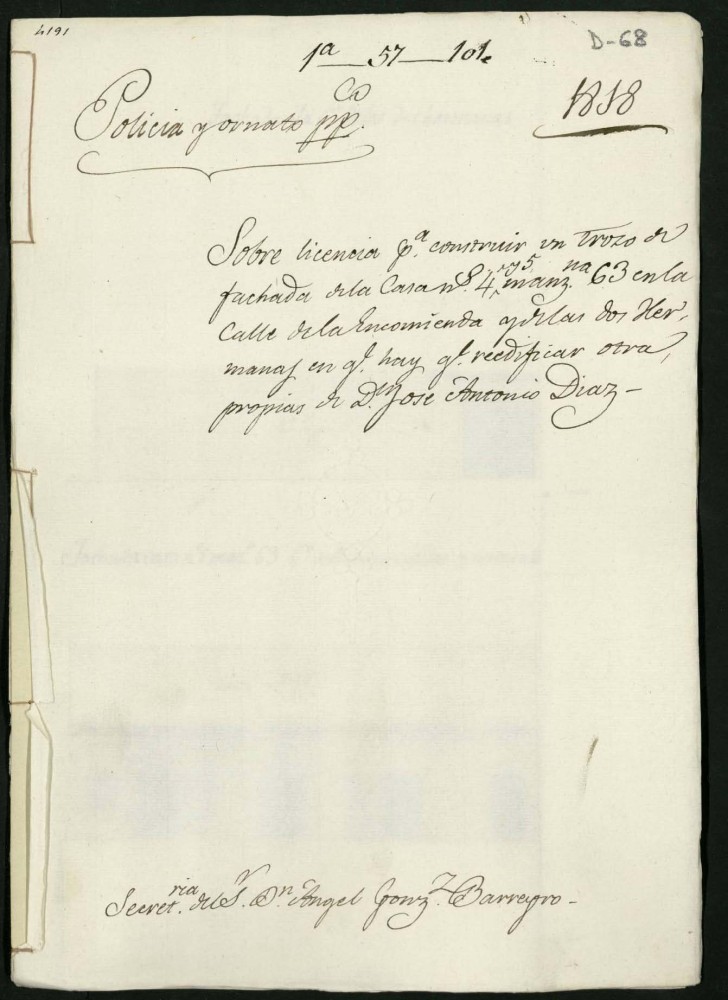 4191
1ª 57 101.
D-68
Policia y ornato ppco.
1818
Sobre licencia pª. construir un trozo de
fachada dela Casa nº. 4, y 5. manzna. 63 en la
Calle de la Encomienda y de las dos Her,
manas en ql. hay ql. reedificar otra,
propias de Dn. Jose Antonio Diaz-
Secretria. del Sr. Dn. Angel Gonzz. Barreyro-